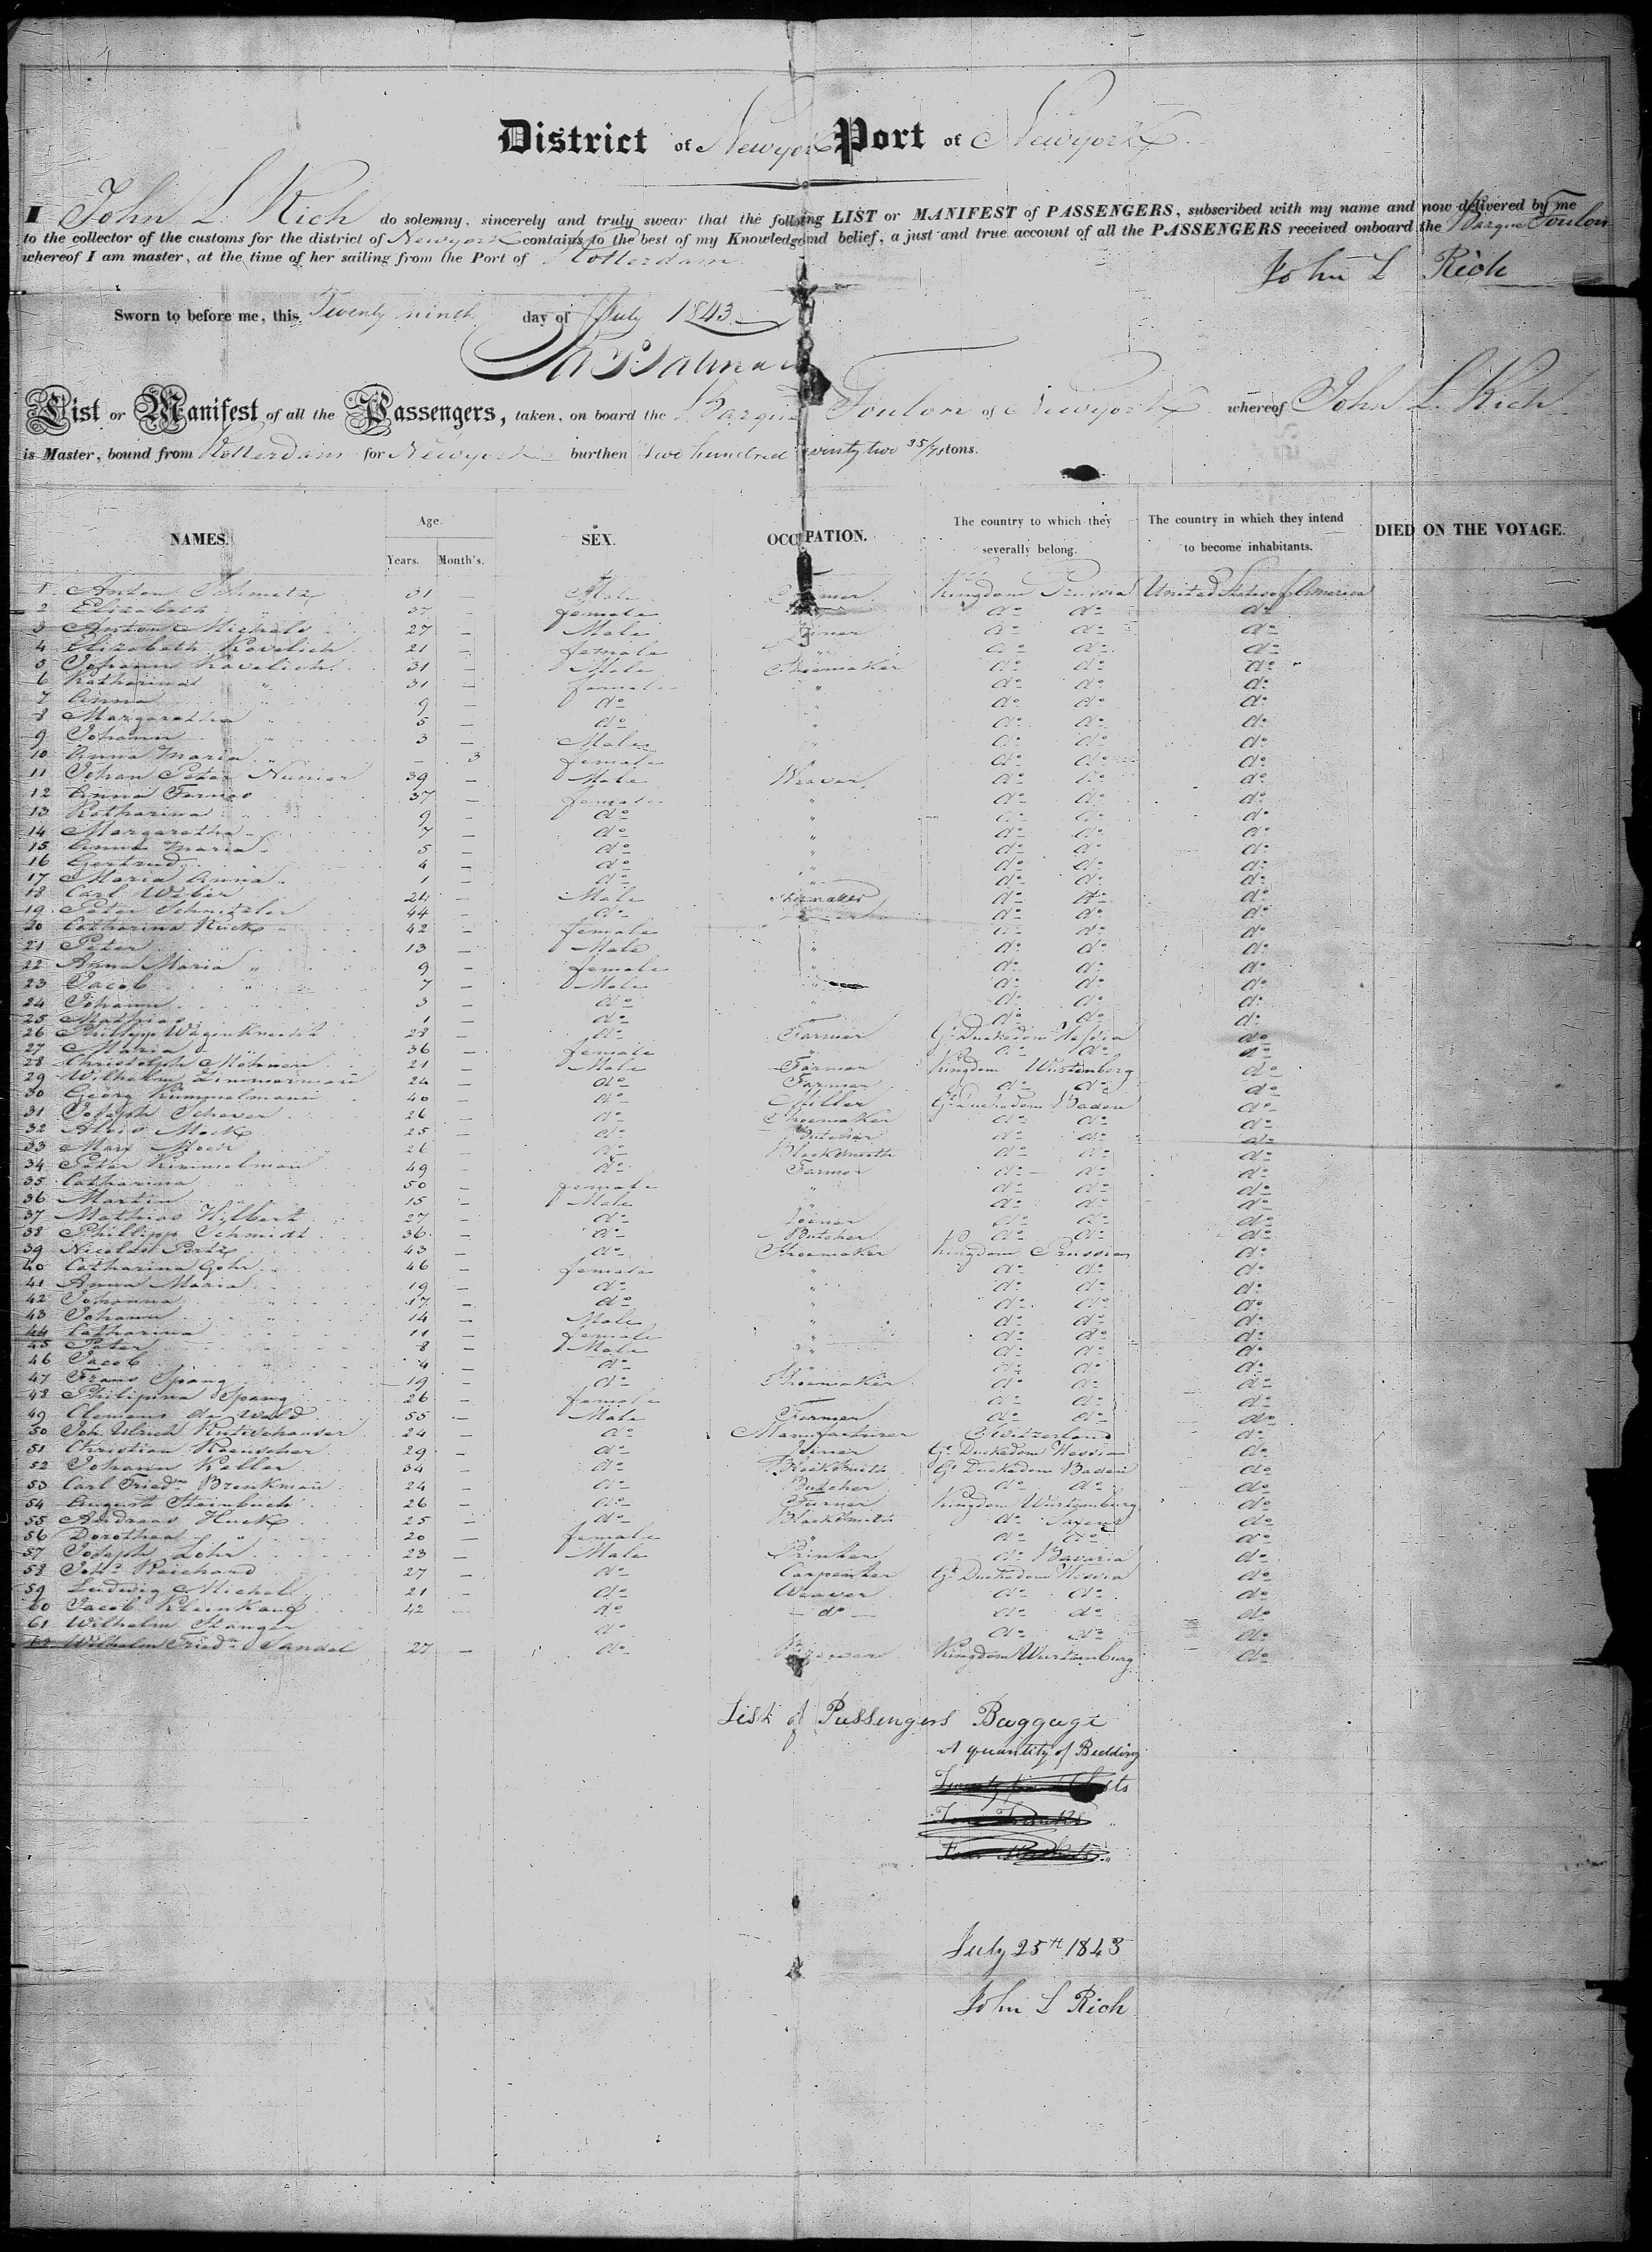 District of Newyork Port of Newyork
I John L. Rich do solemny, sincerely and truly swear that the following LIST or MANIFEST of PASSENGERS, subscribed with my name and now delivered by me
to the collector of the customs for the district of Newyork contains to the best of my Knowledge and belief, a just and true account of all the PASSENGERS received onboard the Barque Toulon
whereof I am master, at the time of her sailing from the Port of Rotterdam
John L Rich
Sworn to before me, this Twenty ninth day of July 1843
List or Manifest of all the Passengers, taken, on board the Barque Toulon of Newyork whereof John L. Rich
is Master, bound from Rotterdam for Newyork burthen Two hundred tons.
NAMES. Age. Years. Month's. SEX. OCCUPATION. The country to which they severally belong. The country in which they intend to become inhabitants. DIED ON THE VOYAGE.
1 Anton Schmitz 31 — Male Farmer Kingdom Prussia United States of America
2 Elizabeth " 37 — female " do do do
3 Anton Michels 27 — Male Joiner do do do
4 Elizabeth Kovelich 21 — female " do do do
5 Johann Kovelich 31 — Male Shoemaker do do do
6 Katharina " 31 — female " do do do
7 Anna " 9 — do " do do do
8 Margaretha " 5 — do " do do do
9 Johann " 3 — Male " do do do
10 Anna Maria " — 3 female do do do
11 Johan Peter Numier 39 — Male Weaver do do do
12 Anna 37 — female " do do do
13 Katharina 9 — do " do do do
14 Margaretha 7 — do " do do do
15 Anna Maria 5 — do " do do do
16 Gertrud 4 — do " do do do
17 Maria Anna 1 — do " do do do
18 Carl Weber 24 — Male Shoemaker do do do
19 Peter Schnitzler 44 — do do do do
20 Catharina Huck 42 — female do do do
21 Peter " 13 — Male " do do do
22 Anna Maria " 9 — female " do do do
23 Jacob " 7 — Male " do do do
24 Johann 3 — do " do do do
25 Mathias 1 — do do do do
26 Philipp Wagenknecht 28 — do Farmer Gt Duckedom Hessia do
27 Maria " 36 — female " do do do
28 Christolph Möhrwen 21 — Male Farmer Kingdom Wurtenberg do
29 Wilhelm Zimmermann 24 — do Farmer do do do
30 Georg Kümmelmann 40 — do Miller Gt Duckedom Baden do
31 Joseph Schaver 26 — do Shoemaker do do do
32 Alois Mock 25 — do Butcher do do do
33 Marx 26 — do Blacksmith do do do
34 Peter Kimmelman 49 — do Farmer do do do
35 Catharina " 50 — female " do do do
36 Martin 15 — Male " do do do
37 Mathias Hilbert 27 — do Joiner do do do
38 Philipp Schmidt 36 — do Butcher do do do
39 Nicolas Pertz 43 — do Shoemaker Kingdom Prussia do
40 Catharina Gohr 46 — female " do do do
41 Anna Maria 19 — do " do do do
42 Johanna " 17 — do " do do do
43 Johann " 14 — Male " do do do
44 Catharina 11 — female " do do do
45 Peter 8 — Male " do do do
46 Jacob " 4 — do " do do do
47 Frans Spang 19 — do Shoemaker do do do
48 Philipina Spang 26 — female do do do
49 Clemens de Wald 55 — Male Farmer do do do
50 Joh. Ulrich Rutishauser 24 — do Manufacturer Switzerland do
51 Christian Roenscher 29 — do Joiner Gt Duckedom Hessia do
52 Johann Keller 34 — do Blacksmith Gt Duckedom Baden do
53 Carl Friedr Brenkman 24 — do Butcher do do do
54 August Steinbuch 26 — do Turner Kingdom Wurtemburg do
55 Andreas Huck 25 — do Blacksmith do Saxony do
56 Dorothea " 20 — female " do do do
57 Joseph Löhr 23 — Male Printer do Bavaria do
58 Joh. Reichard 27 — do Carpenter Gt Duckedom Hessia do
59 Ludwig Michel 21 — do Weaver do do do
60 Jacob Kleinkauf 42 — do — do — do do do
61 Wilhelm Stanger do do do do
62 Wilhelm Friedr Sandel 27 — do Kingdom Wurtemburg do
List of Passengers Baggage
A quantity of Bedding
July 25th 1843
John L Rich